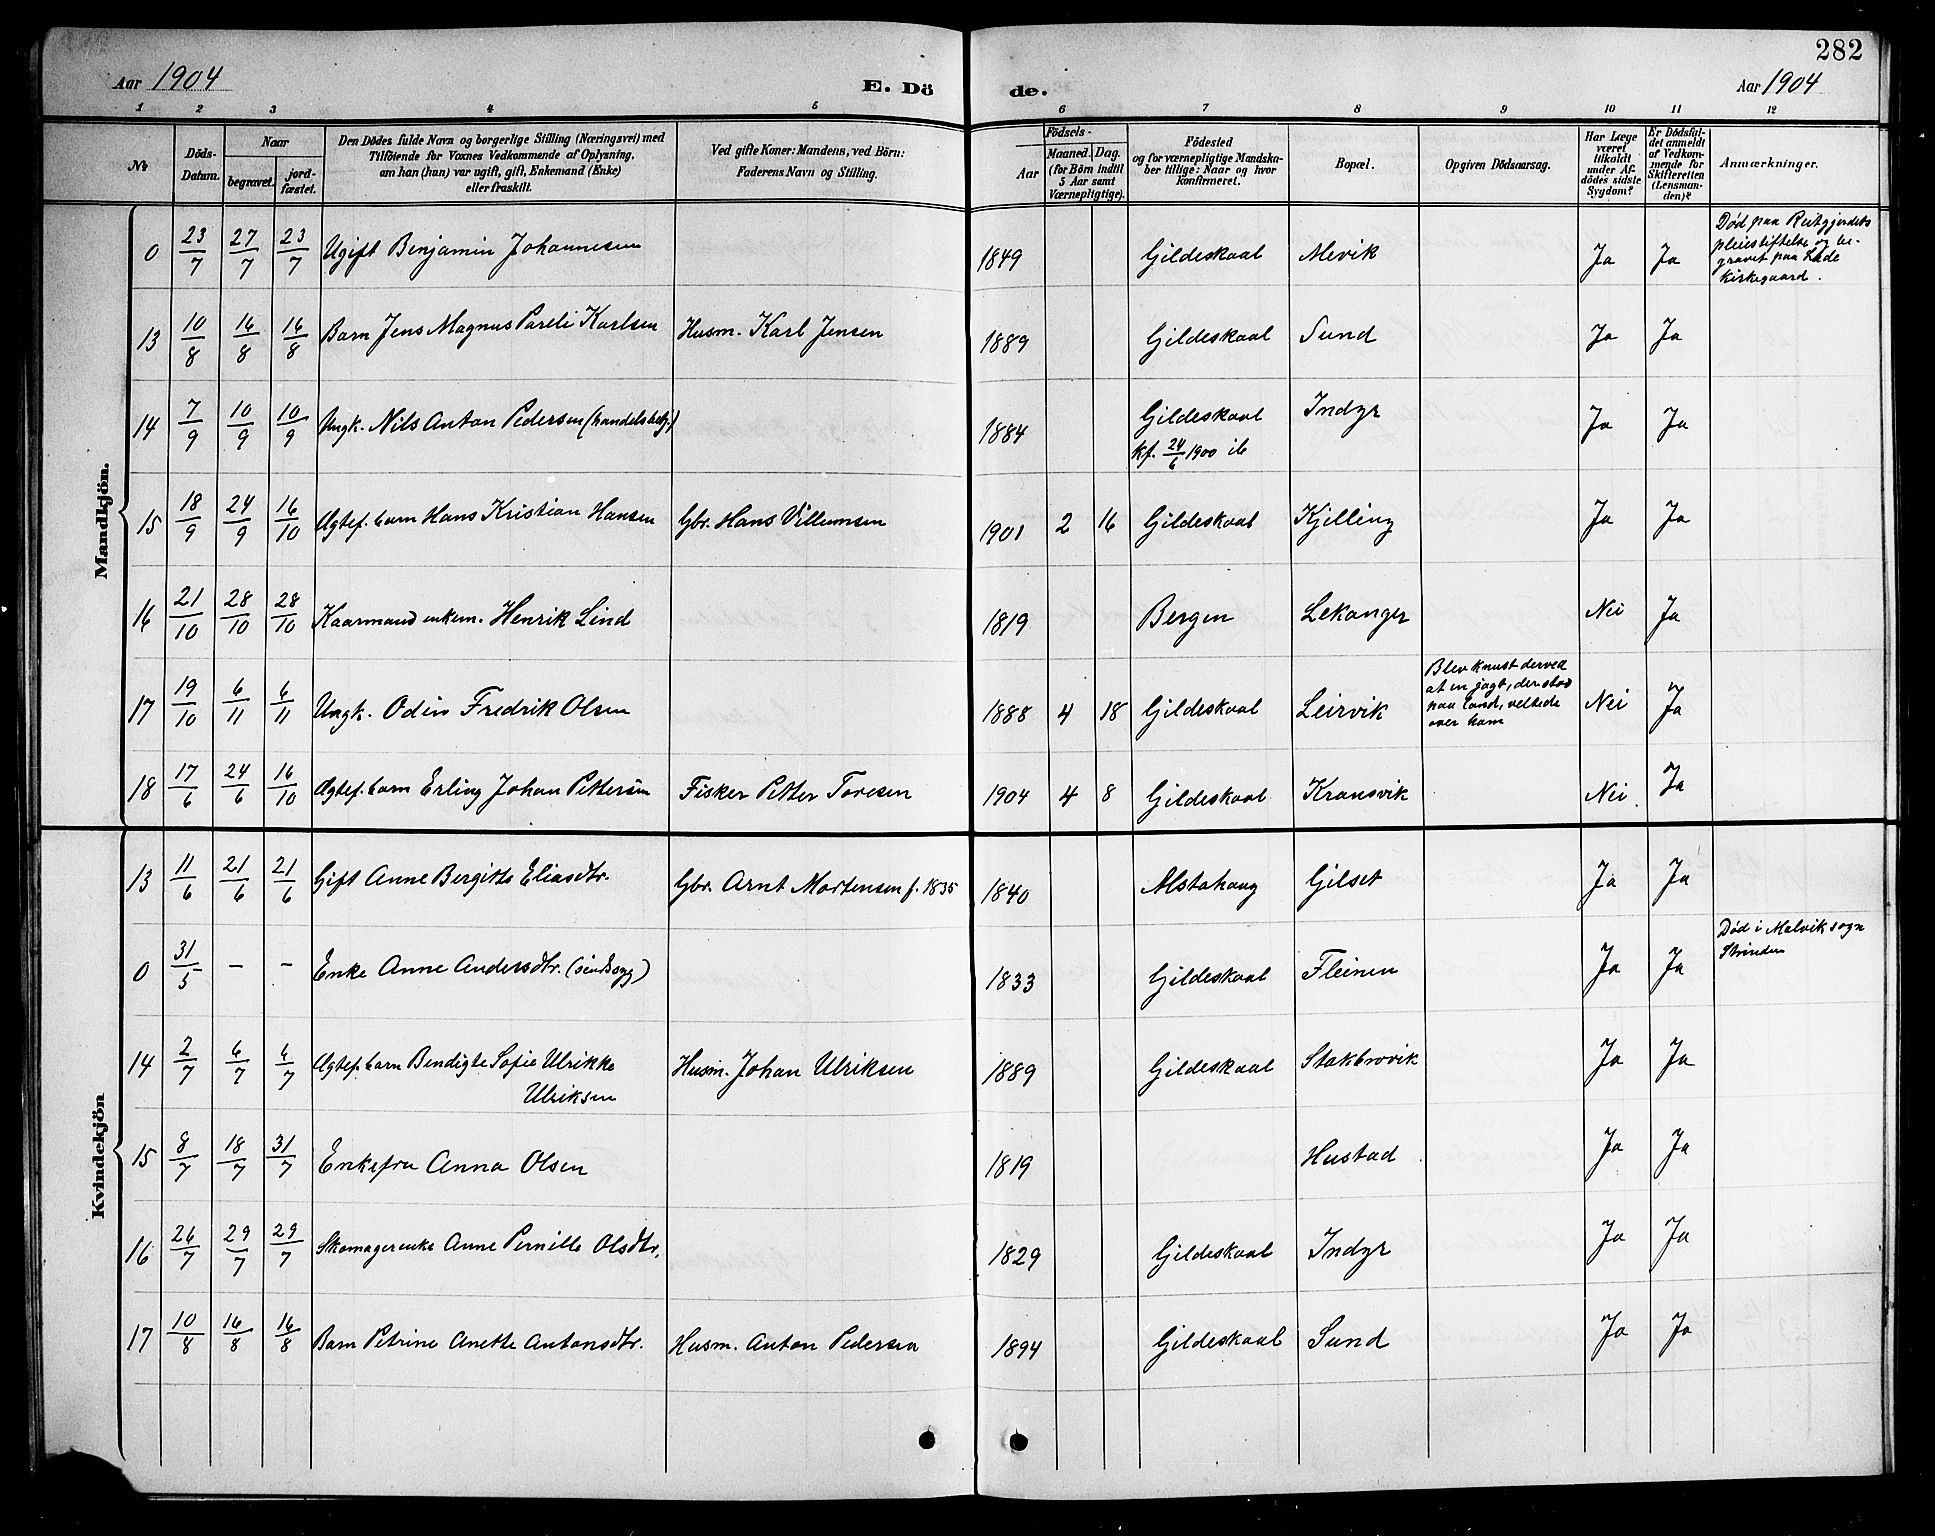 282
Aar 1904 E. Dö de. Aar 1904
1 2 3 4 5 6 7 8 9 10 11 12
No Döds-Datum. Naar begravet. jord-fæstet. Den Dödes fulde Navn og borgerlige Stilling (Næringsvei) med Tilföiende for Voxnes Vedkommende af Oplysning, om han (hun) var ugift, gift, Enkemand (Enke) eller fraskilt. Ved gifte Koner: Mandens, ved Börn: Faderens Navn og Stilling. Födsels- Aar Maaned. Dag. (for Börn indtil 5 Aar samt Værnepligtige). Födested og for værnepligtige Mandskaber tillige: Naar og hvor konfirmeret. Bopæl. Opgiven Dödsaarsag. Har Læge været tilkaldt under Afdödes sidste Sygdom? Er Dödsfaldet anmeldt af Vedkommende for Skifteretten (Lensmanden)? Anmærkninger.
Mandkjön.
0 23/7 27/7 23/7 Ugift Benjamin Johannesen 1849 Gildeskaal Alevik Ja Ja Död paa Reitgjerdets pleiestiftelse og begravet paa Lade kirkegaard.
13 10/8 16/8 16/8 Barn Jens Magnus Pareli Karlsen Husm. Karl Jensen 1889 Gildeskaal Sund Ja Ja
14 7/9 10/9 10/9 Ungk. Nils Anton Pedersen (handelsbetj.) 1884 Gildeskaal Indyr Ja Ja
kf. 24/6 1900 ib
15 18/9 24/9 16/10 Ægtef. barn Hans Kristian Hansen Gbr. Hans Villumsen 1901 2 16 Gildeskaal Kjelling Ja Ja
16 21/10 28/10 28/10 Kaarmand enkem. Henrik Lind 1819 Bergen Lekanger Nei Ja
17 19/10 6/11 6/11 Ungk. Odin Fredrik Olsen 1888 4 18 Gildeskaal Leirvik Blev knust derved at en jagt, der stod paa land, veltede over ham Nei Ja
18 17/6 24/6 16/10 Ægtef. barn Erling Johan Pettersen Fisker Petter Toresen 1904 4 8 Gildeskaal Kransvik Nei Ja
Kvindekjön
13 11/6 21/6 21/6 Gift Anne Bergitte Eliasdtr. Gbr. Arnt Mortensen f. 1835 1840 Alstahaug Gilset Ja Ja
0 31/5 - - Enke Anne Andersdtr. (sindssyg) 1833 Gildeskaal Fleinen Ja Ja Död i Malvik sogn Strinden
14 2/7 6/7 6/7 Ægtef. barn Bendigte Sofie Ulrikke Husm. Johan Ulriksen 1889 Gildeskaal Stakbrovik Ja Ja
Ulriksen
15 8/7 18/7 31/7 Enkefru Anna Olsen 1819 Hustad Ja Ja
16 26/7 29/7 29/7 Skomagerenke Anne Pernille Olsdtr. 1829 Gildeskaal Indyr Ja Ja
17 10/8 16/8 16/8 Barn Petrine Anette Antonsdtr. Husm. Anton Pedersen 1894 Gildeskaal Sund Ja Ja